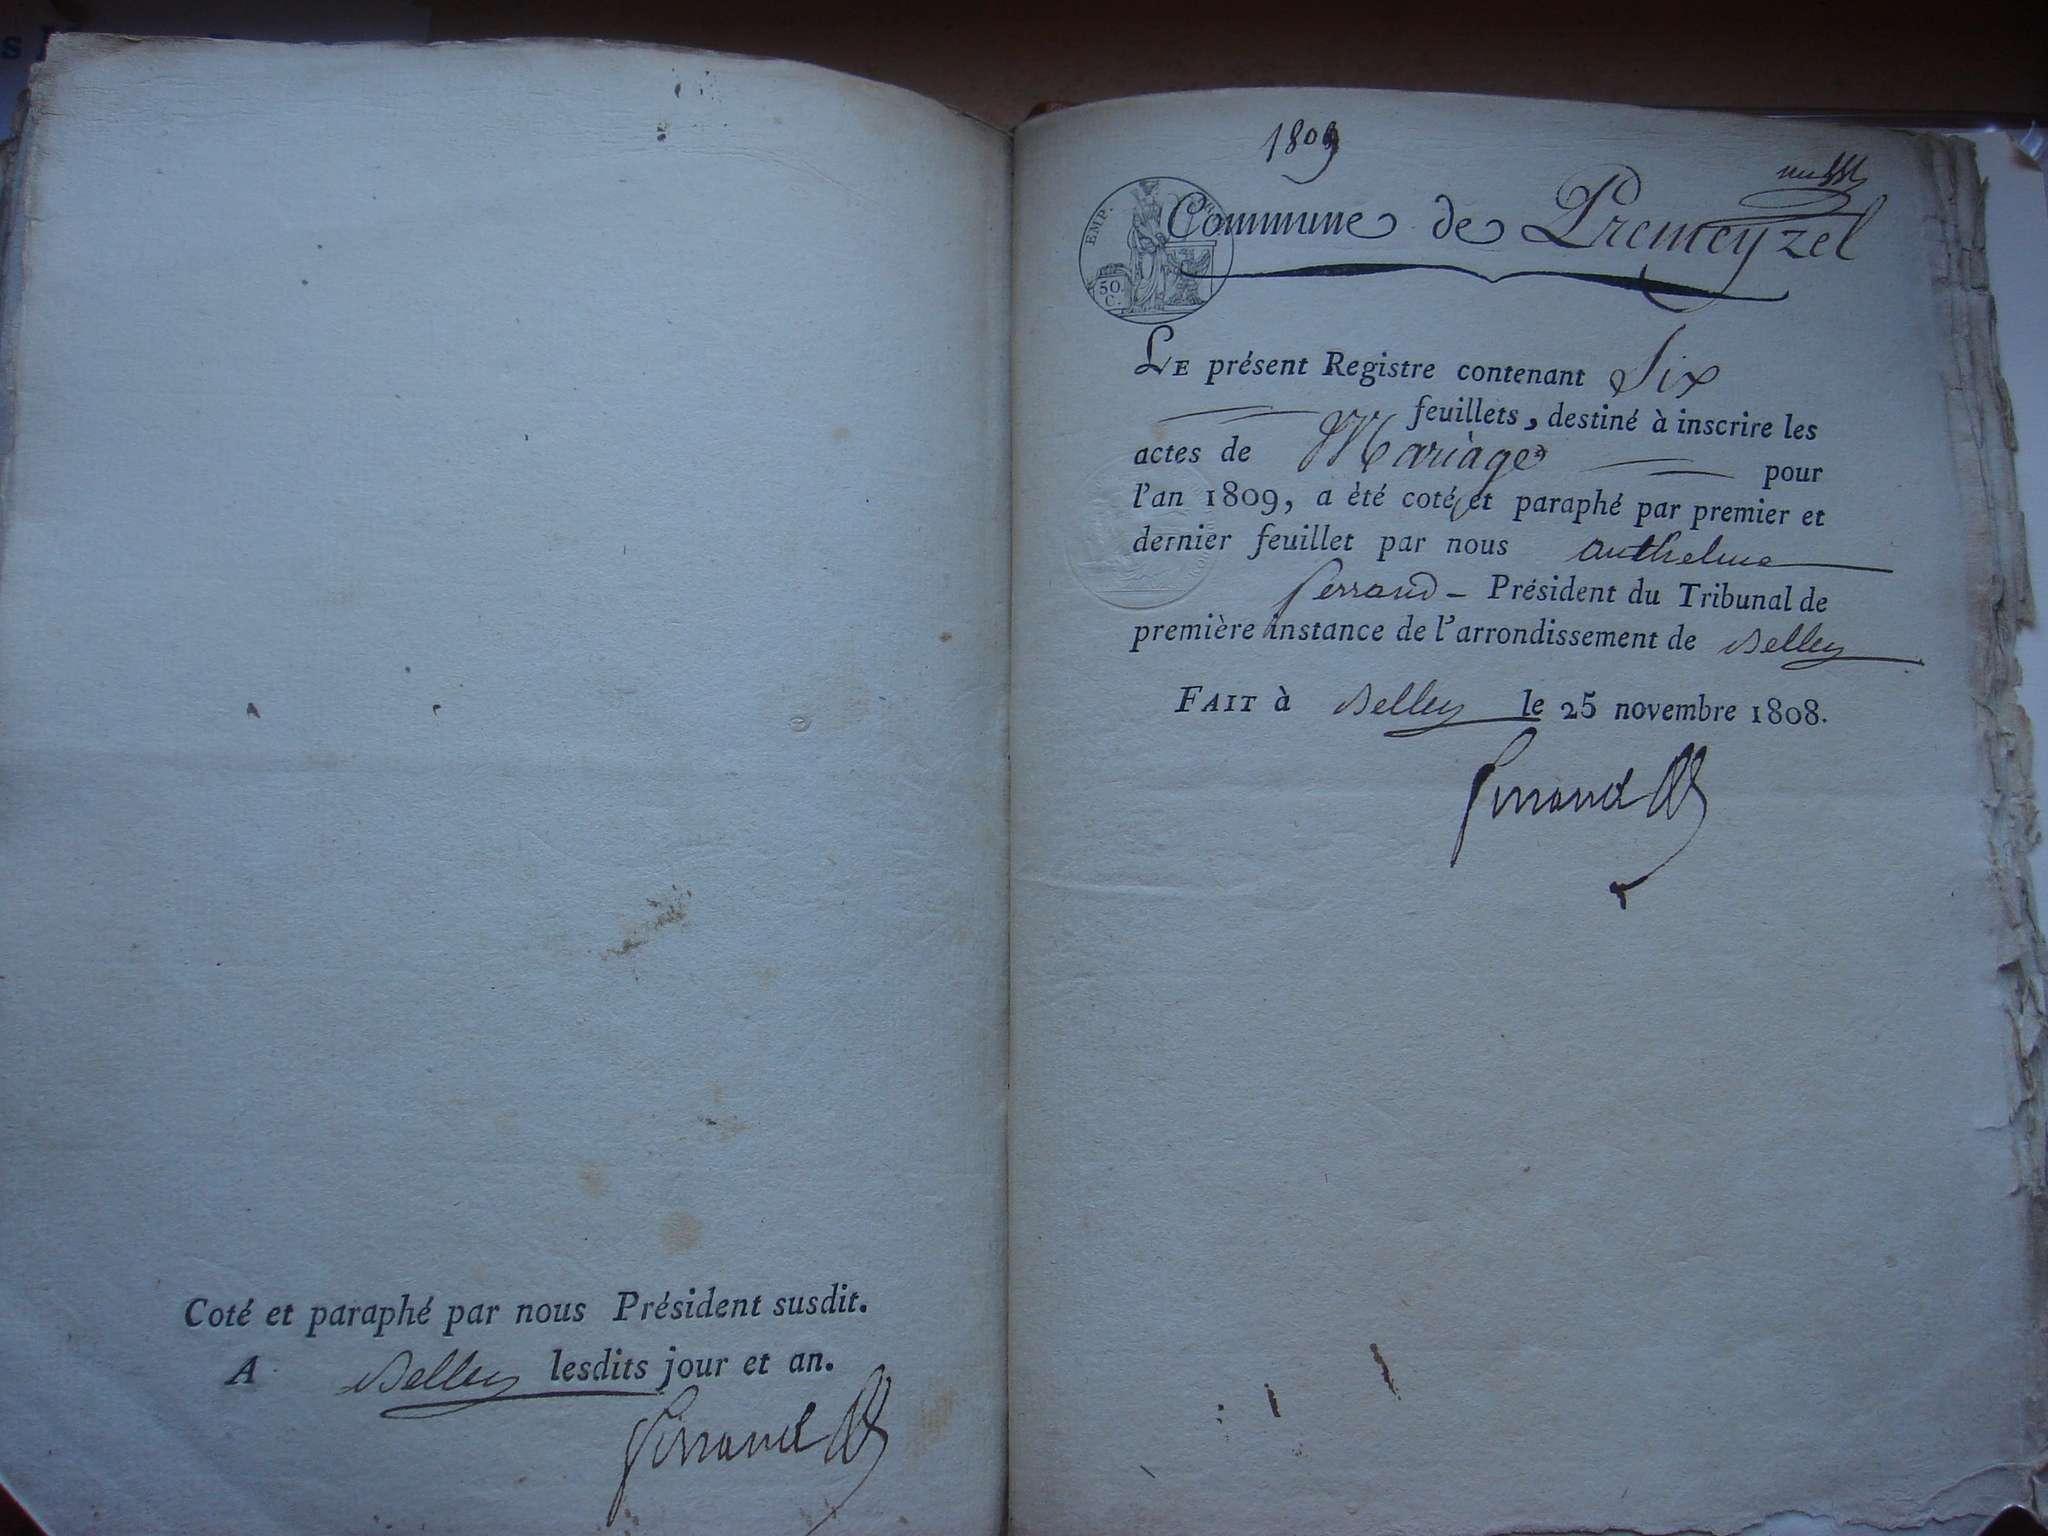 Coté et paraphé par nous Président susdit.
A Belley lesdits jour et an.
Ferrand
1809
Commune de Premeyzel
EMP.
50.
C.
LE présent Registre contenant Six
feuillets, destiné à inscrire les
actes de Mariage pour
l'an 1809, a été coté et paraphé par premier et
dernier feuillet par nous anthelme
ferrand - Président du Tribunal de
première instance de l'arrondissement de Belley
FAIT à Belley le 25 novembre 1808.
Ferrand